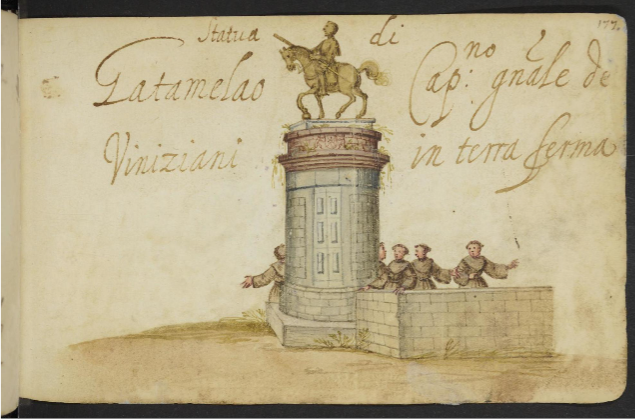 177.
Statua di
Gatamelao Cap:no gnãle de
Viniziani in terra ferma